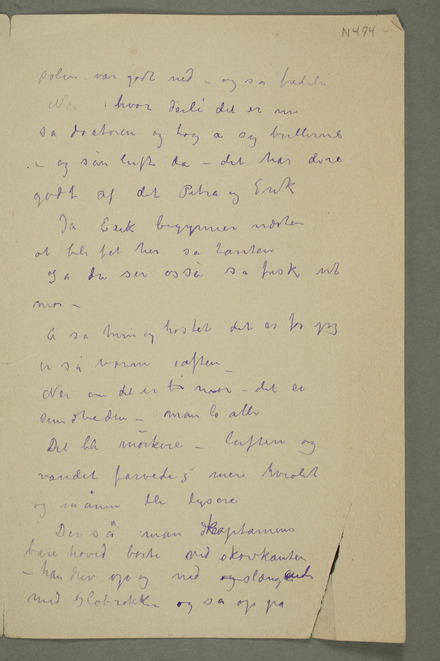 N 494
solen var godt ned – og sa fredeli
Nei hvor deili det er nu
sa doctoren og tog a sig brillerne
– og sån luft da – det har dere
godt af det Petra og Erik
Ja Erik begynner næsten
at bli fet her sa tanten
og a du ser også så frisk ut
mor –
A sa hun og hostet det er for jeg
er så varm iaften –
Nei om det er mor – det er
sundheden – man lo alle
Det ble mörkere – luften og
vandet farvedes mere hvidt
og månen ble lysere
Der så man kaptainens
bare hoved borte ved skovkanten
– han drev op og ned og slængende
med slobrokken og sa op på